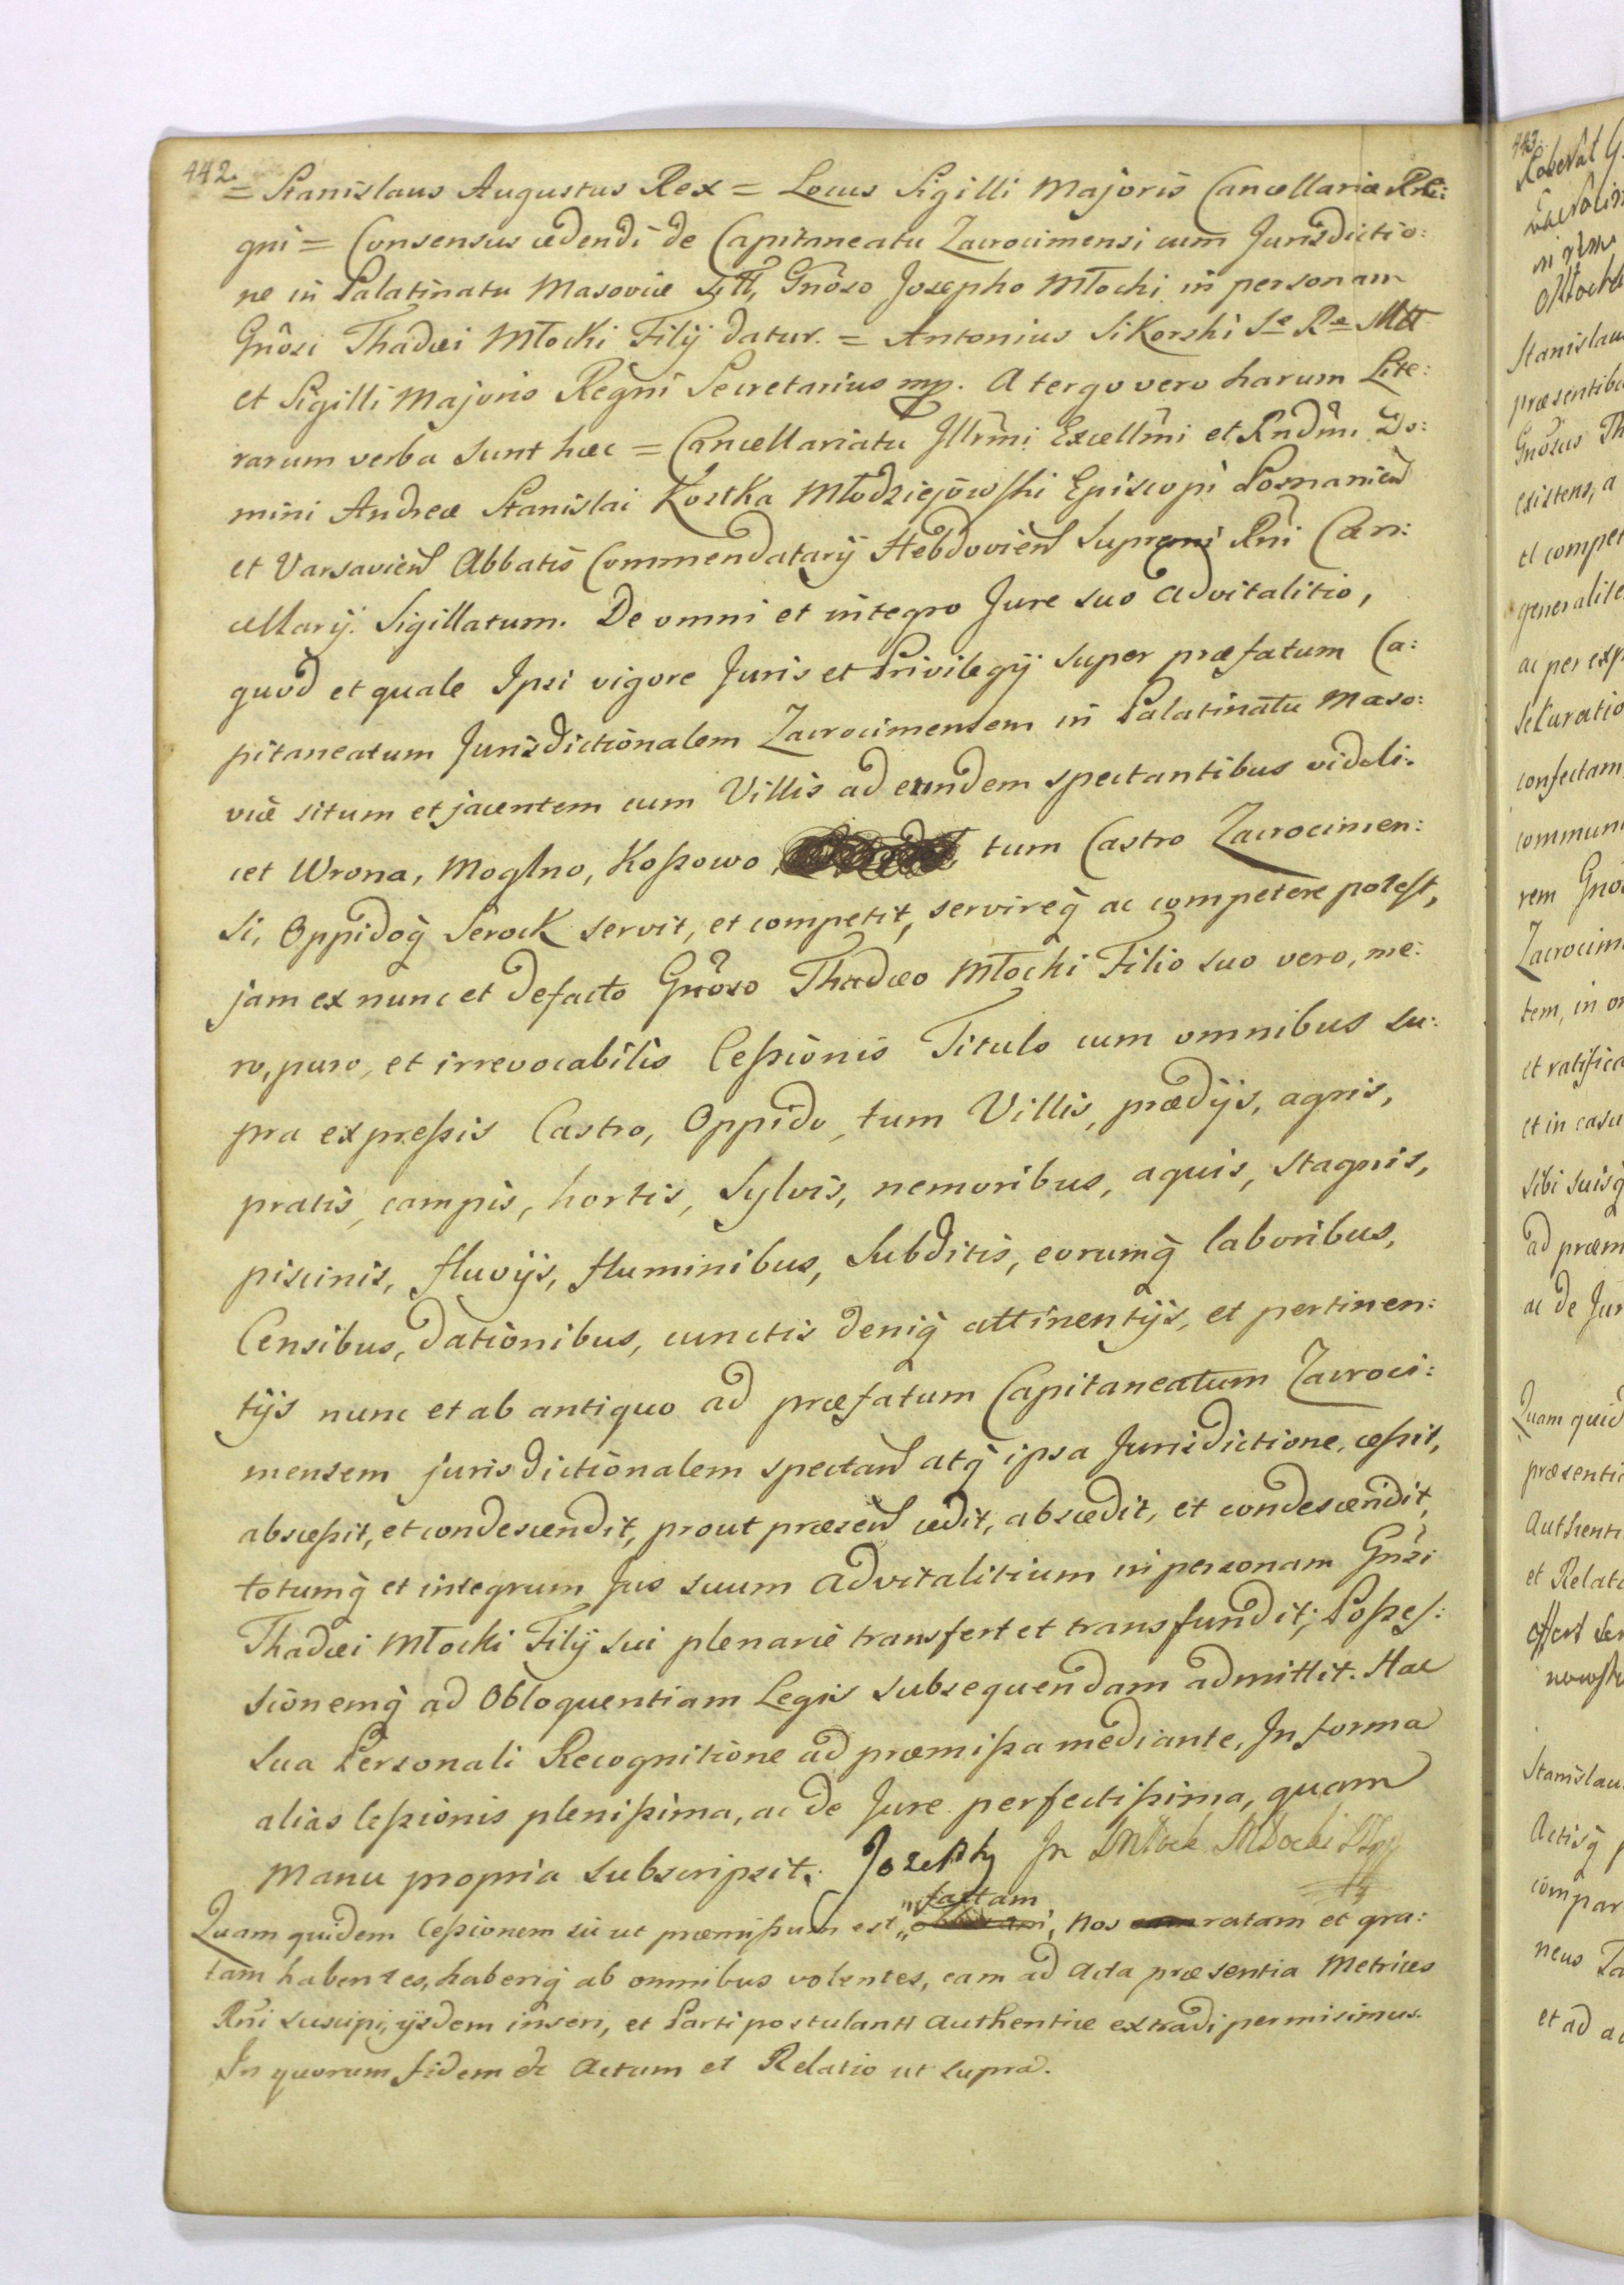 442.
= Stanislaus Augustus Rex = Locus Sigilli Majoris Cancellariæ Re:
gni = Consensus cedendi de Capitaneatu Zacrocimensi cum Jurisdictio:
ne in Palatinatu Masoviæ Gnôso Josepho Młocki in personam
Gnôsi Thadæi Młocki Filij datur. = Antonius Sikorski S. R. Mtt
et Sigilli Majoris Regni Secretarius mp. A tergo vero harum Lite:
rarum verba sunt hæc = Cancellariatu Jllrîmi Excellmi et Rndmi Do:
mini Andreæ Stanislai Kostka Młodziejowski Episcopi Posnanien
et Varsavien Abbatis Commendatarij Hebdovien Supremi Rni Can:
cellarij. Sigillatum. De omni et integro Jure suo advitalitio,
quod et quale Ipsi vigore Juris et Privilegij super præfatum Ca:
pitaneatum Jurisdictionalem Zacrocimensem in Palatinatu Maso:
viæ situm et jacentem cum Villis ad eundem spectantibus videli:
cet Wrona, Moglno, Koßowo, tum Castro Zacrocimen:
si, Oppidoq̀ Serock servit, et competit, servireq̀ ac competere potest,
jam ex nunc et defacto Gnôso Thadæo Młocki Filio suo vero, me:
ro, puro, et irrevocabilis Ceßionis Titulo cum omnibus su:
pra expreßis Castro, Oppido, tum Villis, prædijs, agris,
pratis, campis, hortis, Sylvis, nemoribus, aquis, stagnis,
piscinis, fluvijs, fluminibus, Subditis, eorumq̀ laboribus,
Censibus, dationibus, cunctis deniq̀ attinentijs, et pertinen:
tijs nunc et ab antiquo ad præfatum Capitaneatum Zacroci:
mensem jurisdictionalem spectan atq̀ ipsa Jurisdictione, ceßit,
absceßit, et condescendit, prout præsen cedit, abscedit, et condescendit,
totumq̀ et integrum Jus suum advitalitium in personam Gnsi
Thadæi Młocki Filij sui plenarie transfert et transfundit; Poßes:
sionemq̀ ad Obloquentiam Legis subsequendam admittit. Hac
sua Personali Recognitione ad præmißa mediante, In forma
alias Ceßionis plenißima, ac de Jure perfectißima, quam
manu propria subscripsit. Jozeph
factam
Quam quidem Ceßionem sic ut præmißum est, Nos ratam et gra:
tam habentes, haberiq̀ ab omnibus volentes, eam ad Acta præsentia Metrices
Rni suscipi, ijsdem inseri, et Parti postulanti authentice extradi permisimus.
In quorum fidem &c Actum et Relatio ut supra.
443.
Stanislaus
præsentibu
Gnôsus Th
existens, a
et compet
generalite
ac per exp
confectam
commun
rem Gnos
Zacrocim
tem, in om
et ratifica
et in casu
sibi suisq̀
ad præm
ac de Jur
Quam quid
præsentia
Authenti
et Relati
offert
Stanislau
Actisq̀ p
compar
neus
et ad ac